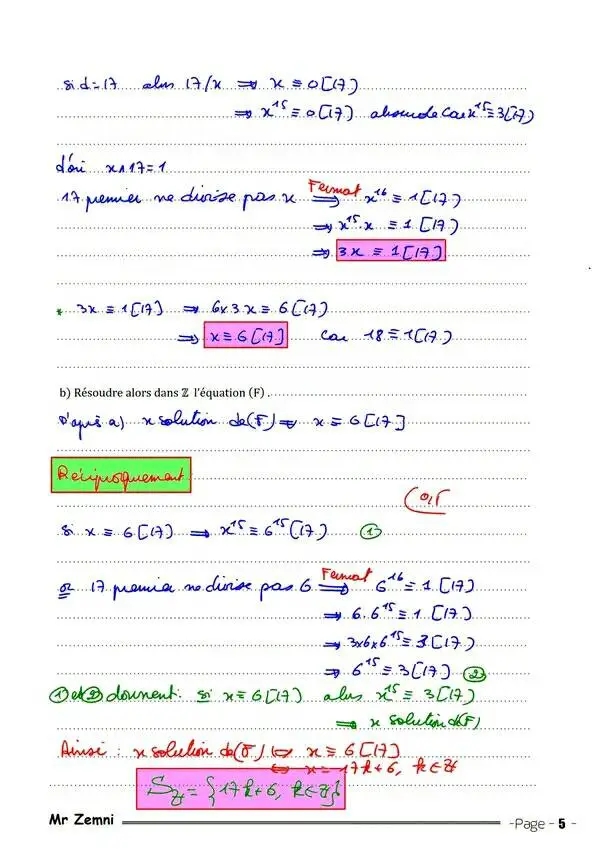 si d=17 alors 17/x ⇒ x ≡ 0[17]
⇒ x¹⁵ ≡ 0[17] absurde car x¹⁵ ≡ 3[17]
d'où x∧17=1
17 premier ne divise pas x Fermat ⇒ x¹⁶ ≡ 1[17]
⇒ x¹⁵.x ≡ 1[17]
⇒ 3x ≡ 1[17]
* 3x ≡ 1[17] ⇒ 6x3x ≡ 6[17]
⇒ x ≡ 6[17] car 18 ≡ 1[17]
b) Résoudre alors dans ℤ l'équation (F) .
D'après a) x solution de (F) ⇒ x ≡ 6[17]
Réciproquement
0,5
si x ≡ 6[17] ⇒ x¹⁵ ≡ 6¹⁵[17] ①
or 17 premier ne divise pas 6 Fermat ⇒ 6¹⁶ ≡ 1[17]
⇒ 6.6¹⁵ ≡ 1[17]
⇒ 3x6x6¹⁵ ≡ 3[17]
⇒ 6¹⁵ ≡ 3[17] ②
① et ② donnent: si x ≡ 6[17] alors x¹⁵ ≡ 3[17]
⇒ x solution de (F)
Ainsi : x solution de (F) ⇔ x ≡ 6[17]
⇔ x = 17k+6, k∈ℤ
S_ℤ = {17k+6, k∈ℤ}
Mr Zemni -Page - 5 -